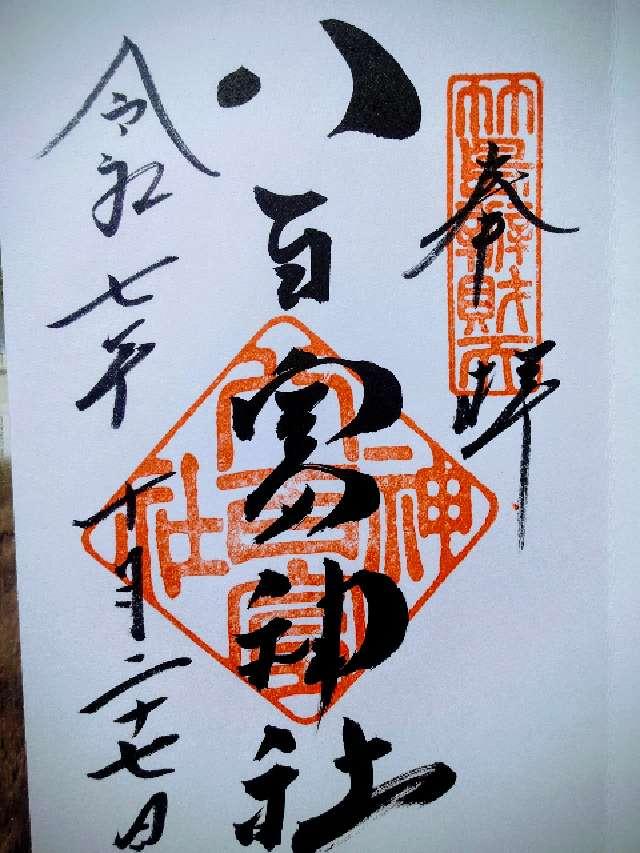 奉拝
竹島辨財天
八百富神社
八百富神社
令和七年十月二十七日